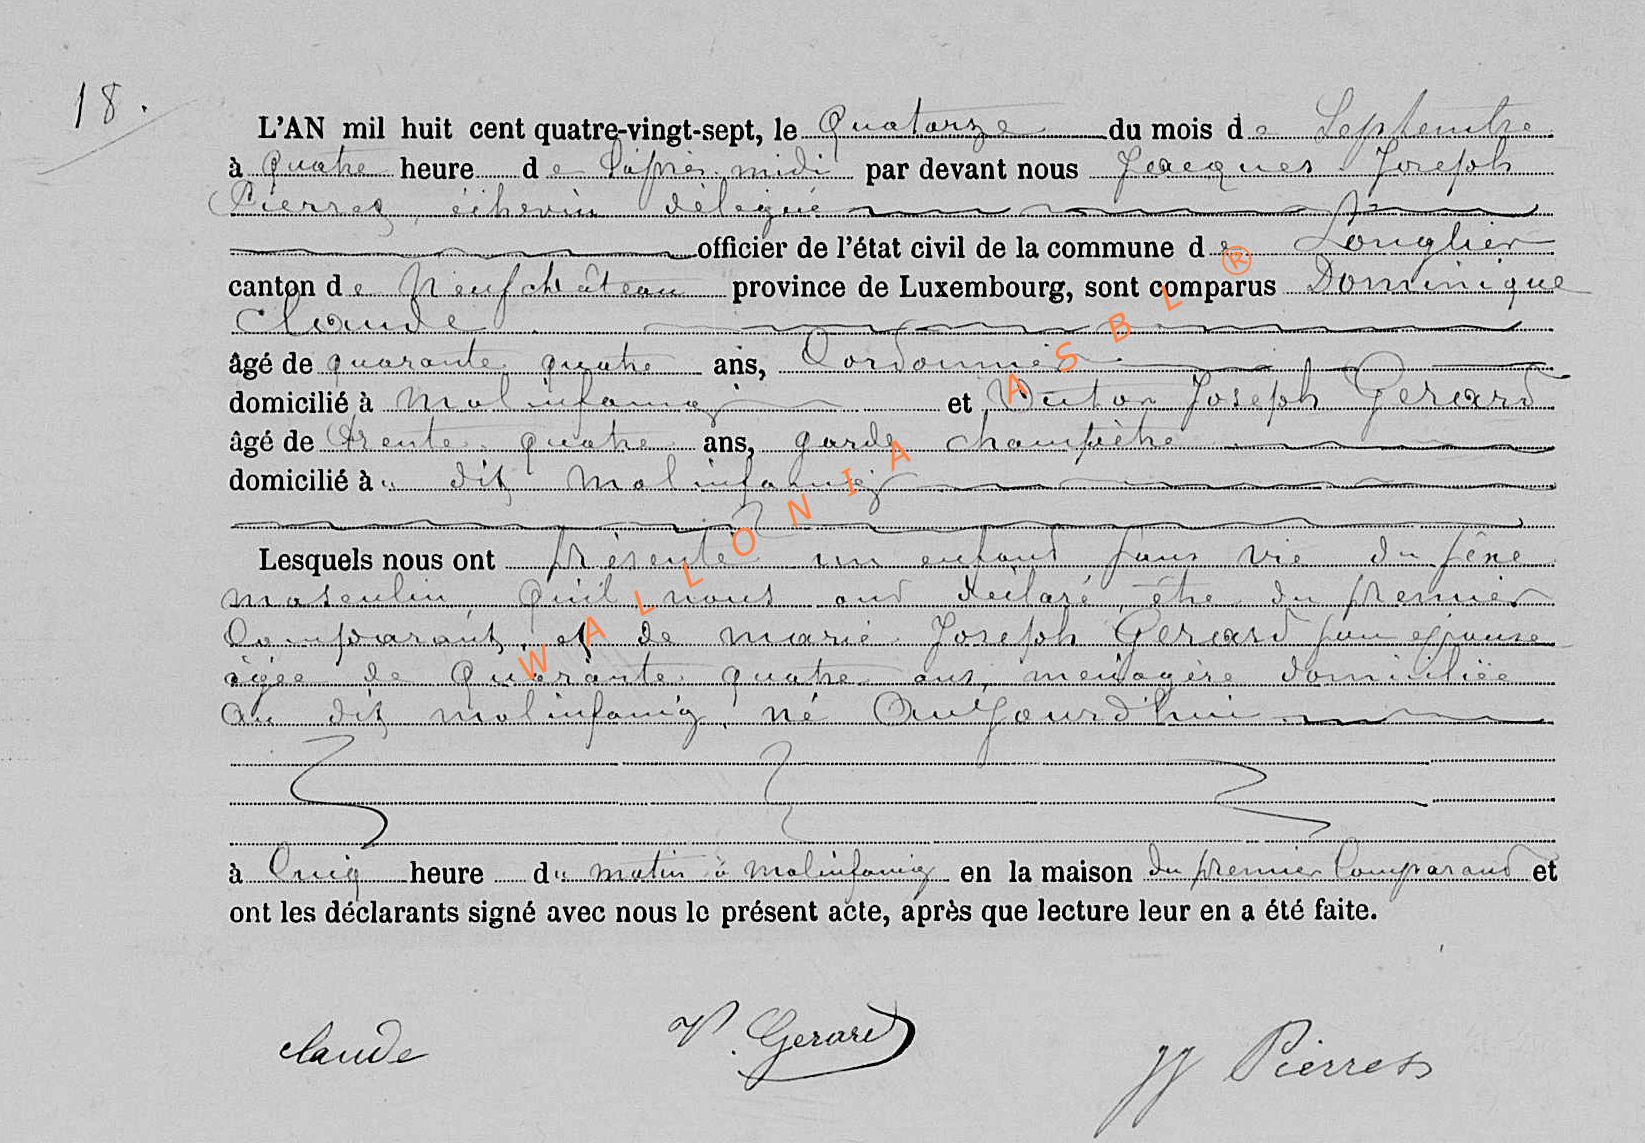 18.
L'AN mil huit cent quatre-vingt-sept, le Quatorze du mois de Septembre
à quatre heure de l'après midi par devant nous Jacques Joseph
Pierret, échevin délégué
officier de l'état civil de la commune de Longlier
canton de Neufchâteau province de Luxembourg, sont comparus Dominique
Claude
âgé de quarante quatre ans, Cordonnier
domicilié à Molinfaing et Victor Joseph Gerard
âgé de trente quatre ans, garde champêtre
domicilié à u dit Molinfaing
Lesquels nous ont présenté un enfant sans vie du sêxe
masculin, qu'il nous ont déclaré être du premier
Comparant, et de marie Joseph Gerard son epouse
agée de Quarante quatre ans, menagère domiciliée
au dit molinfaing, né Aujourd'hui
à Cinq heure du matin à Molinfaing en la maison du premier Comparant et
ont les déclarants signé avec nous le présent acte, après que lecture leur en a été faite.
claude V. Gerard JJ Pierret
WALLONIA ASBL ®